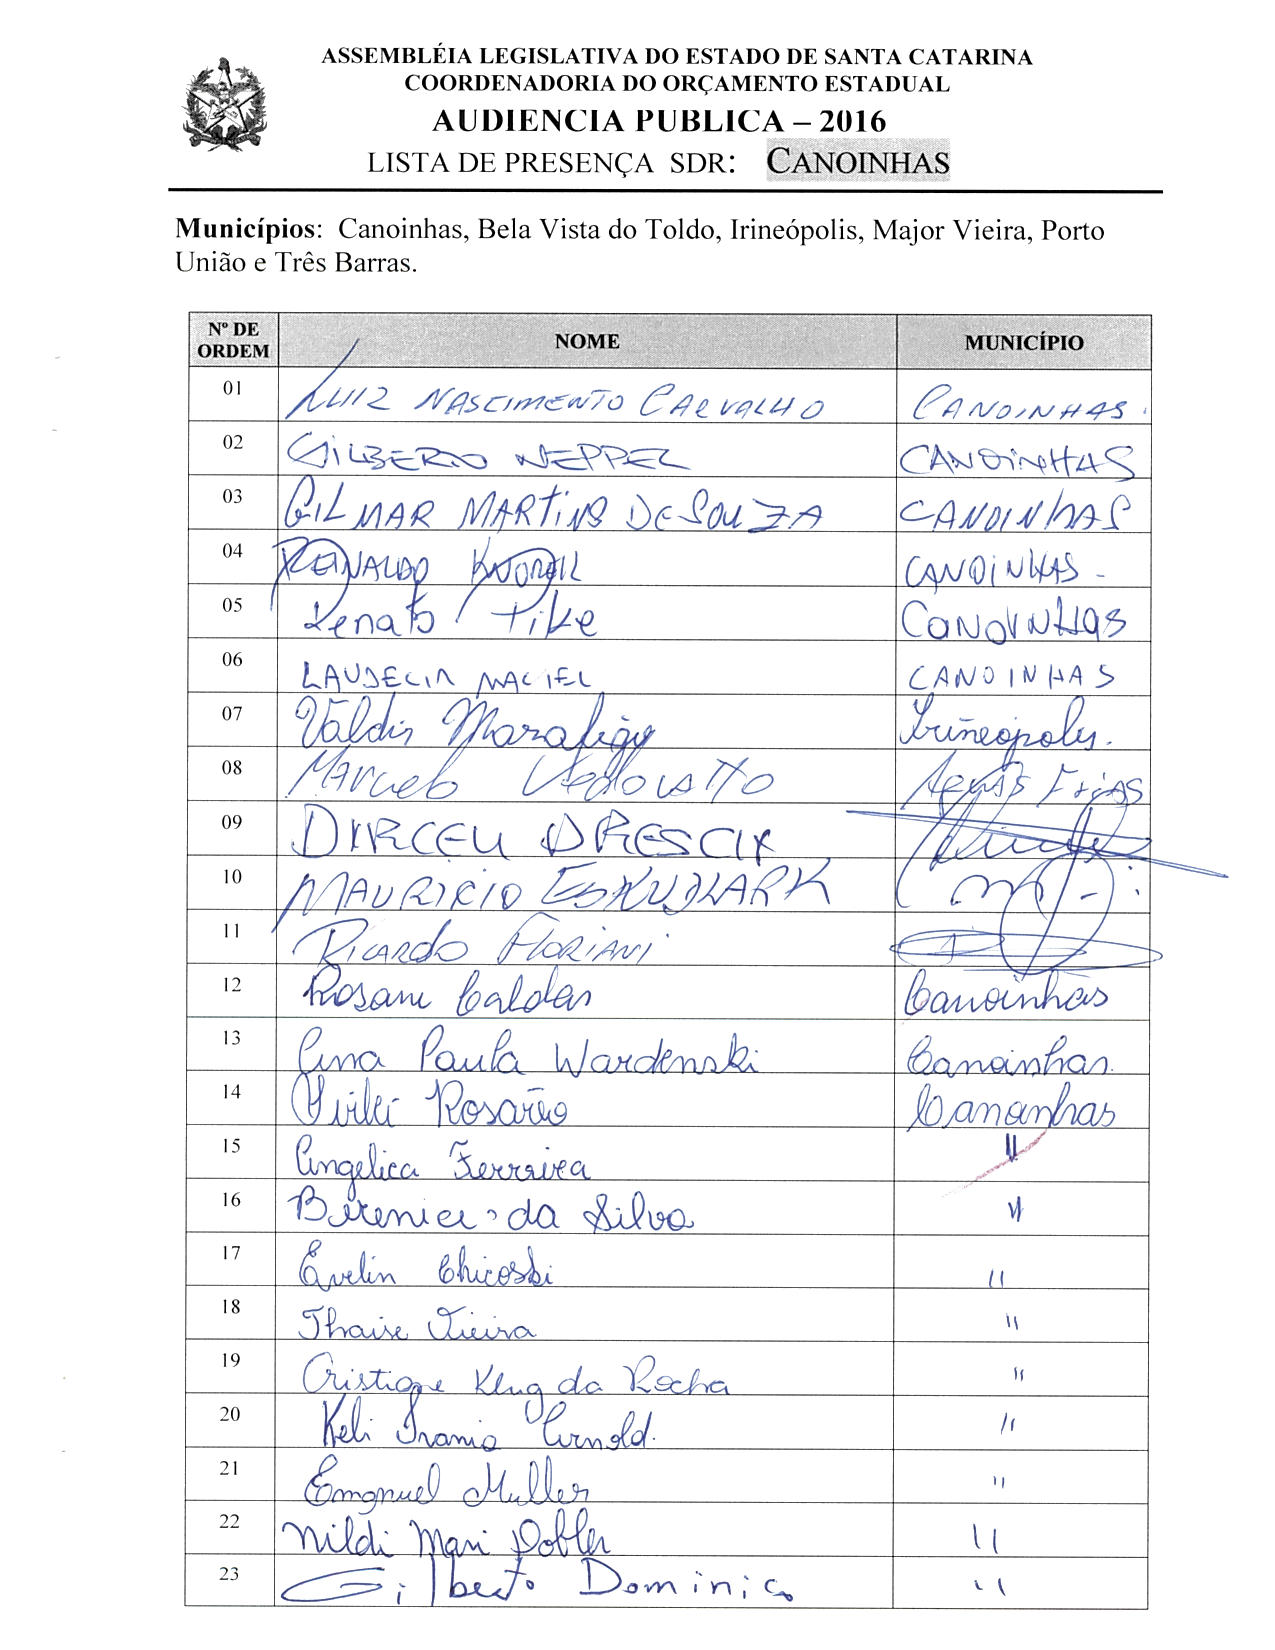 ASSEMBLÉIA LEGISLATIVA DO ESTADO DE SANTA CATARINA
COORDENADORIA DO ORÇAMENTO ESTADUAL
AUDIENCIA PUBLICA – 2016
LISTA DE PRESENÇA SDR: CANOINHAS
Municípios: Canoinhas, Bela Vista do Toldo, Irineópolis, Major Vieira, Porto
União e Três Barras.
Nº DE ORDEM NOME MUNICÍPIO
01 LUIZ NASCIMENTO CARVALHO CANOINHAS.
02 GILBERTO NEPPEL CANOINHAS
03 GILMAR MARTINS DE SOUZA CANOINHAS
04 RONALDO CANOINHAS -
05 Renato Pike CANOINHAS
06 LAUDECIR MACIEL CANOINHAS
07 Valdir Marafigo Irineópolis.
08 Marcelo Vedovatto Aguas Frias
09 DIRCEU DRESCH
10 MAURICIO ESKUDLARK
11 RICARDO FLORIANI
12 Rosane Caldas Canoinhas
13 Ana Paula Wardenski Canoinhas
14 Rosario Canoinhas
15 Angelica Ferreira "
16 Berenice da Silva "
17 Evelin Chicoski "
18 Thaise Vieira "
19 Cristiane Klug da Rocha "
20 Keli Irania Arnold. "
21 Emanuel Muller "
22 Nildi Mari Dobler "
23 Gilberto Dominico "